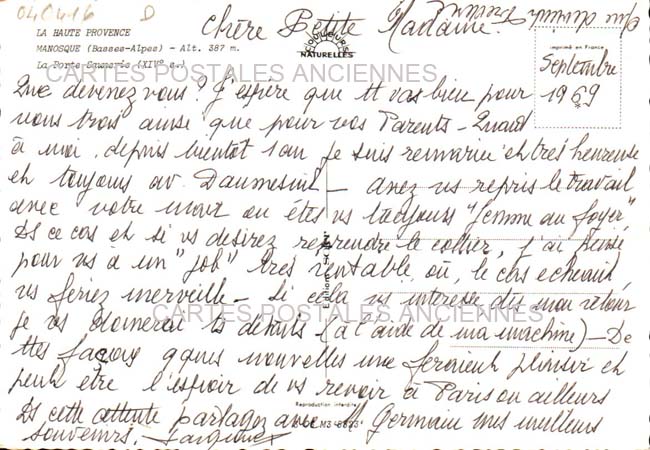 040416 D
Chère Petite Madame.
LA HAUTE PROVENCE
MANOSQUE (Basses-Alpes) - Alt. 387 m.
La Porte Saunerie (XIVe s.)
COULEURS
NATURELLES
imprimé en France
Septembre
1969
CARTES POSTALES ANCIENNES
Que devenez vous? J'espère que tt va bien pour
vous trois ainsi que pour vos Parents - Quant
à moi, depuis bientôt 1 an je suis remariée et très heureuse
et toujours av. Daumesnil - avez vs repris le travail
avec votre mari ou êtes vs toujours "femme au foyer"
Ds ce cas et si vs desirez reprendre le collier, j'ai pensé
pour vs à un "job" très rentable, où, le cas echeant
vs feriez merveille - Si cela vs interesse dès mon retour
je vs donnerai ts details (à l'aide de ma machine) - De
ttes façons qques nouvelles me feraient plaisir et
peut être l'espoir de vs revoir à Paris ou ailleurs
Ds cette attente partagez avec Germain mes meilleurs
souvenirs.
CARTES POSTALES ANCIENNES
Reproduction interdite